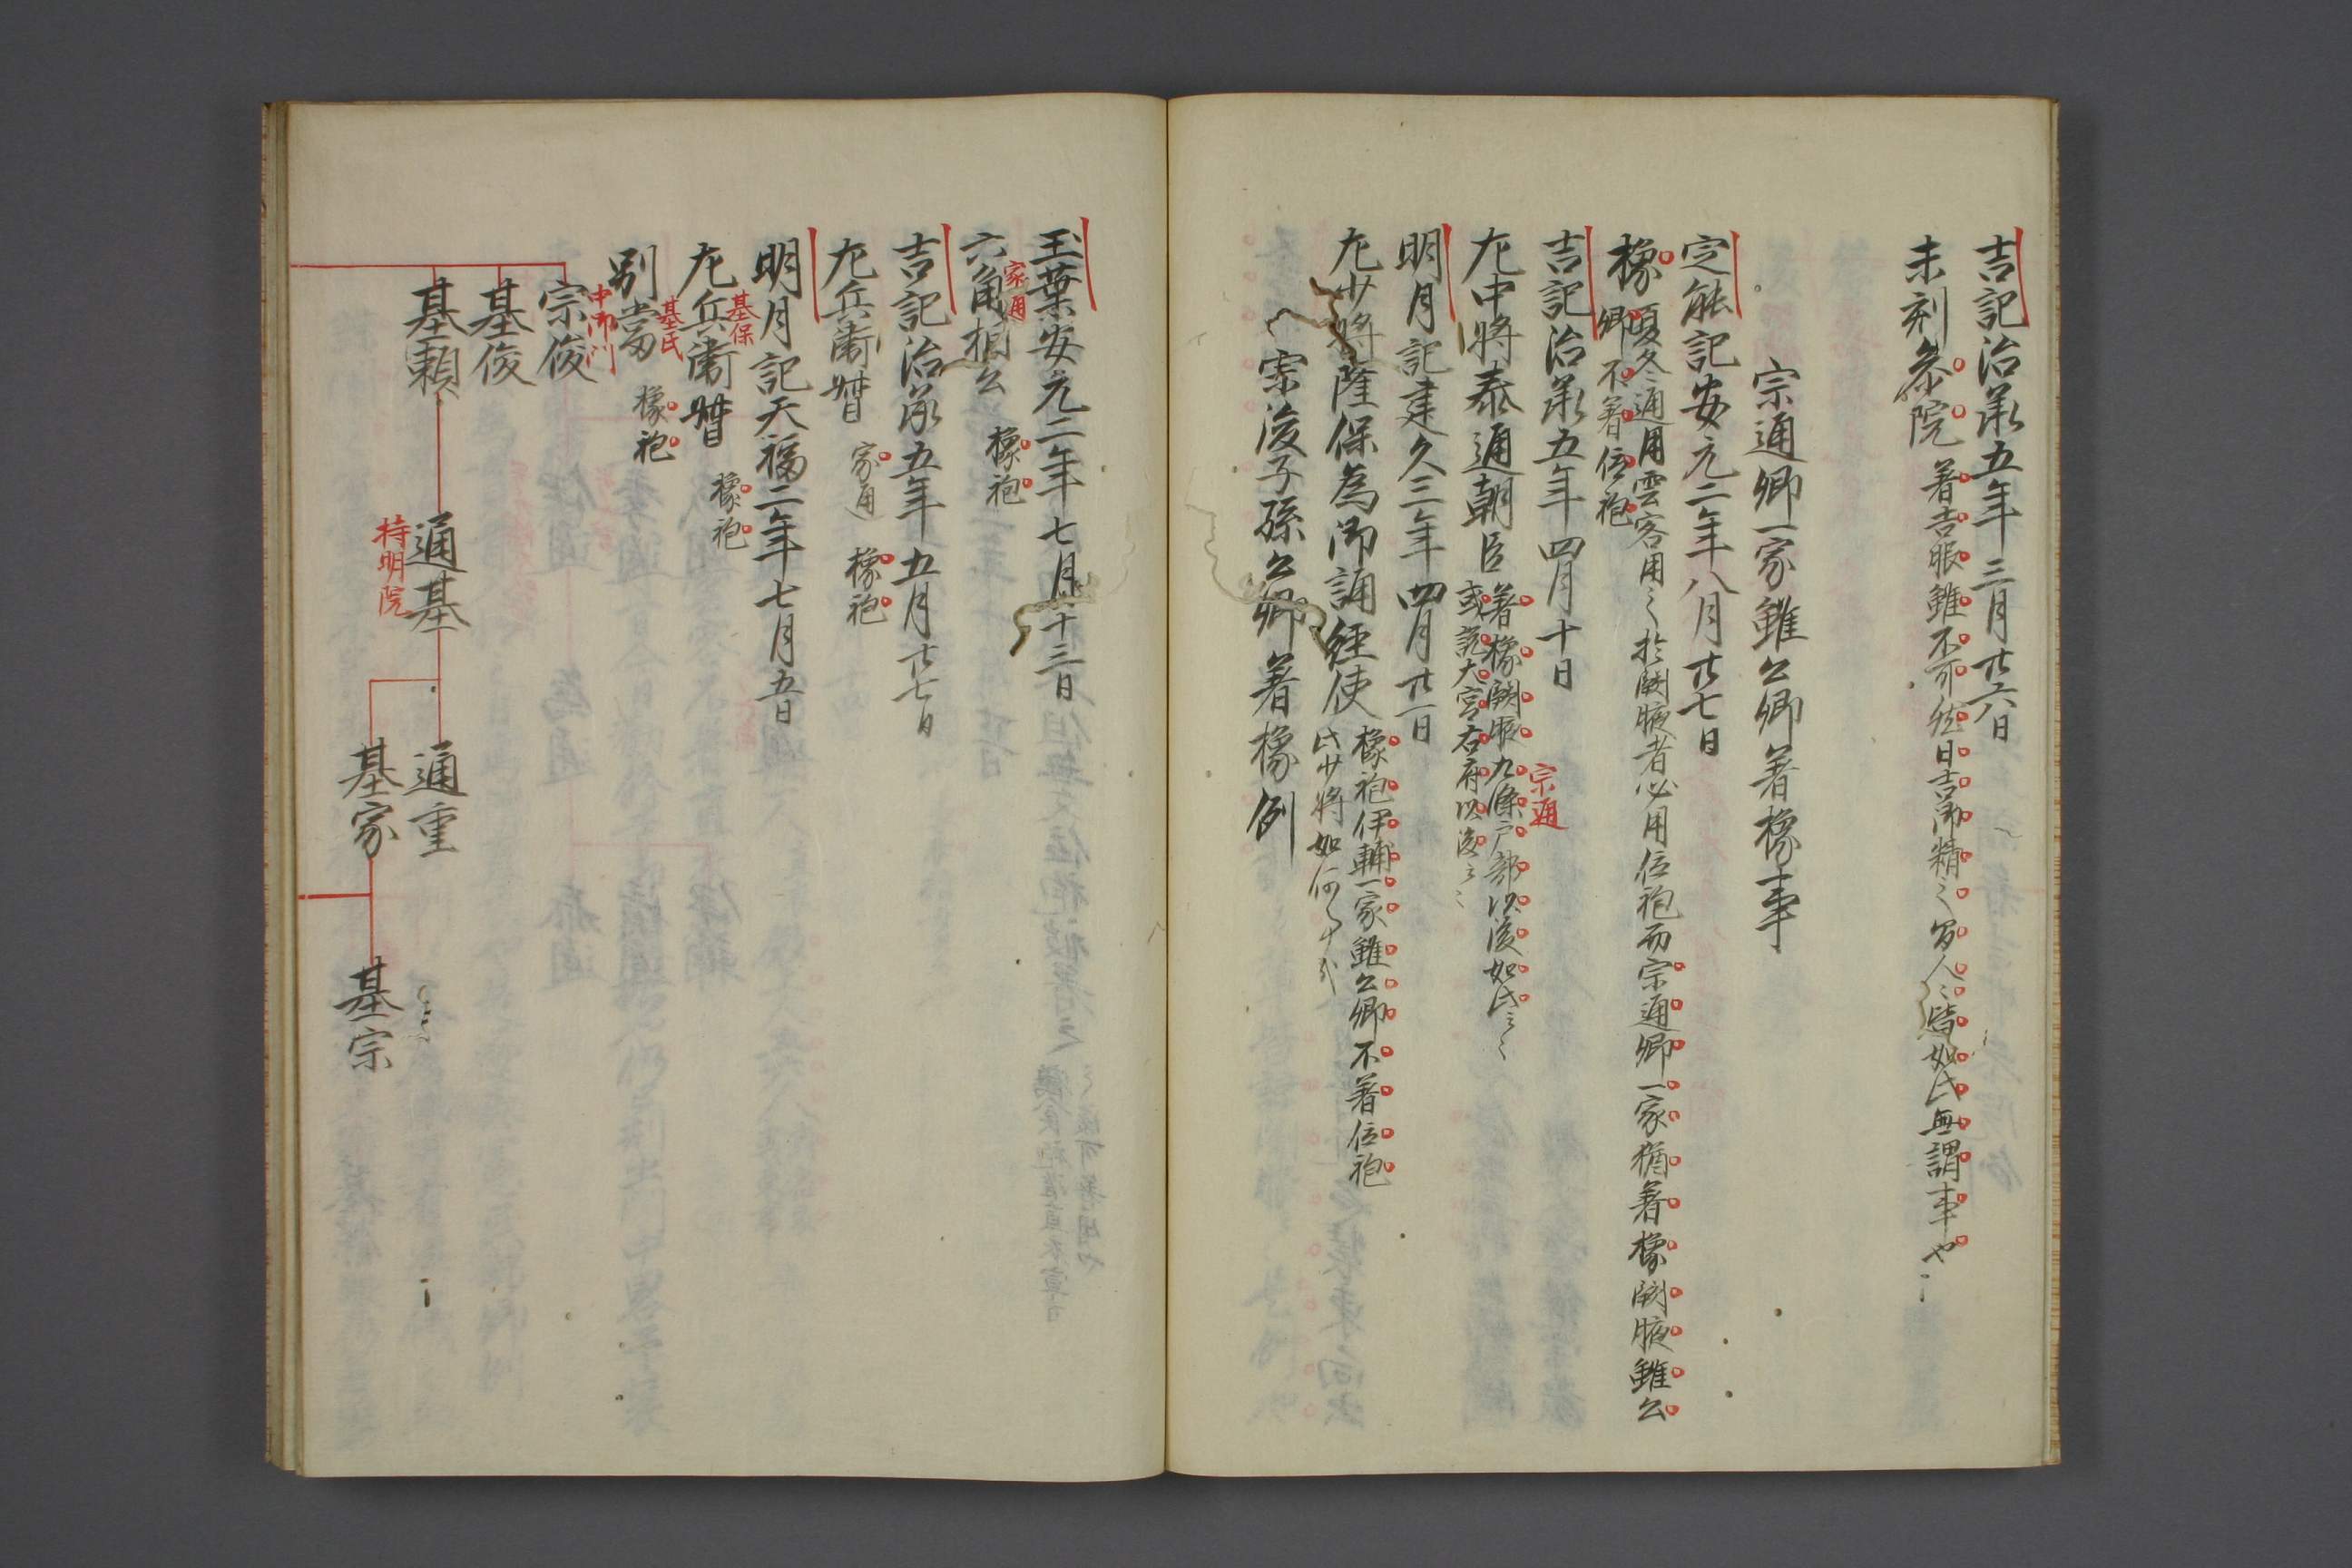 吉記治承五年三月廿六日
未刻参院
著吉服雖不可然日吉御精進之間人々皆如此無謂事也
宗通卿一家雖公卿著橡事
定能記安元二年八月廿七日
橡
夏冬通用雲客用之於闕腋者必用位袍而宗通卿一家猶著橡闕腋雖公
卿不著位袍
吉記治承五年四月十日
左中将泰通朝臣
著橡闕腋九條戸部以後如此云々
宗通
或説大宮右府以後云々
明月記建久三年四月廿一日
左少将隆保為御誦経使
橡袍伊輔一家雖公卿不著位袍
此少将如何
宗俊子孫公卿著橡例
玉葉安元二年七月十三日
家通
六角相公
橡袍
吉記治承五年五月廿七日
左兵衛督
家通
橡袍
明月記天福二年七月五日
基保
左兵衛督
橡袍
基氏
別當
橡袍
中御門
宗俊
基俊
基頼
通基
持明院
通重
基家
基宗